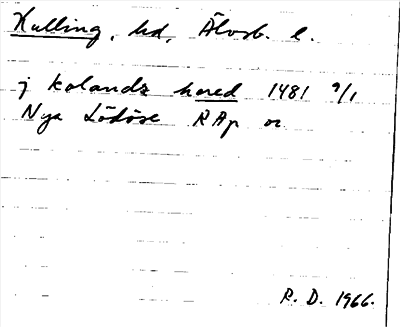 Kulling, hd, Älvsb. l.
j kolandz hered 1481 9/1
Nya Lödöse RAp or
R. D. 1966.